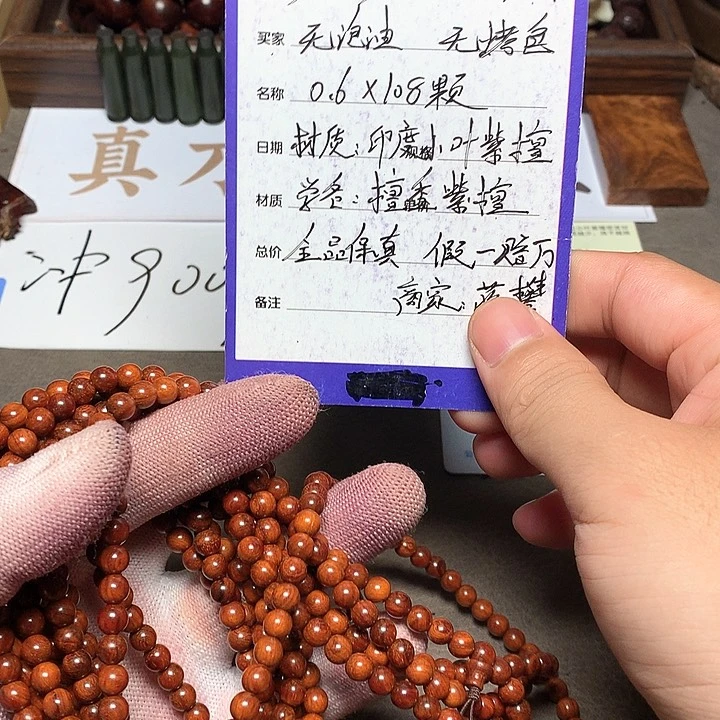 买家 无泡油 无烤色
名称 0.6×108颗
日期 材质：印度小叶紫檀
材质 学名：檀香紫檀
总价 全品保真 假一赔万
备注 商家：
真
冲900